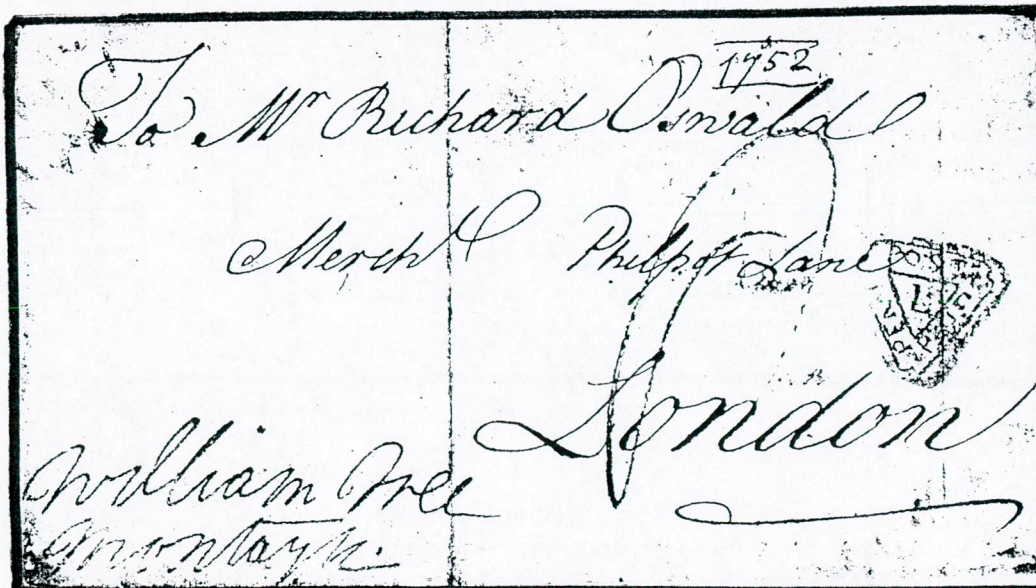 1752
To Mr Richard Oswald
Mercht Philpot Lane
London
William